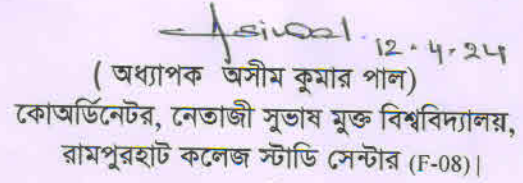 12.4.24
( অধ্যাপক অসীম কুমার পাল)
কোঅর্ডিনেটর, নেতাজী সুভাষ মুক্ত বিশ্ববিদ্যালয়,
রামপুরহাট কলেজ স্টাডি সেন্টার (F-08)|